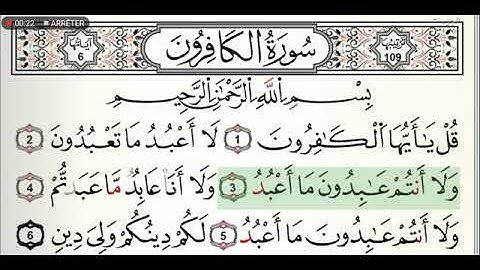 00:22 ARRÊTER
آياتها 6 سُورَةُ الكَافِرُونَ ترتيبها 109
بِسْمِ اللَّهِ الرَّحْمَٰنِ الرَّحِيمِ
قُلْ يَا أَيُّهَا الْكَافِرُونَ 1 لَا أَعْبُدُ مَا تَعْبُدُونَ 2
وَلَا أَنتُمْ عَابِدُونَ مَا أَعْبُدُ 3 وَلَا أَنَا عَابِدٌ مَّا عَبَدتُّمْ 4
وَلَا أَنتُمْ عَابِدُونَ مَا أَعْبُدُ 5 لَكُمْ دِينُكُمْ وَلِيَ دِينِ 6